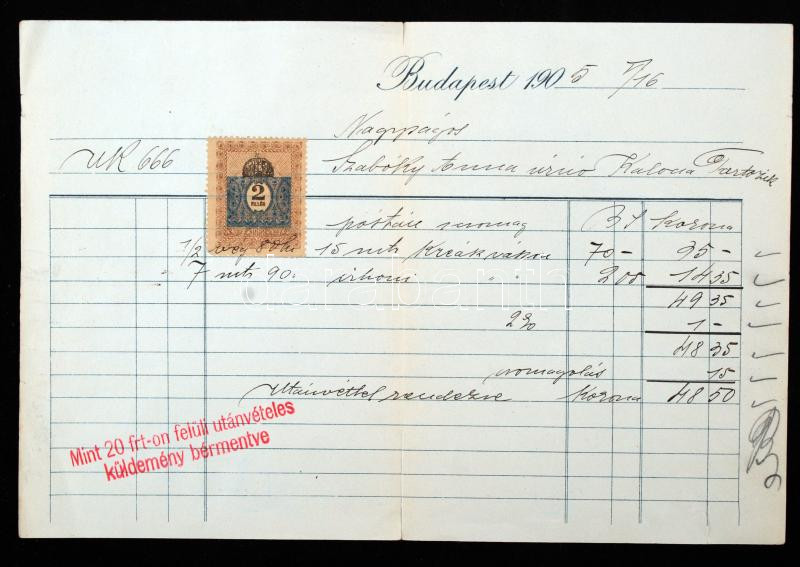 Budapest 1905 V/16
Nagyságos
UR 666
Szabóky Anna úrnő Kalocsa Tartozik
2
FILLÉR
postai csomag korona
1/2 vég 80 15 mtr 70- 35-
7 mtr 90 " " 200 14 35
49 35
2% 1-
48 35
csomagolás 15
Utánvéttel rendezve Korona 48 50
Mint 20 frt-on felüli utánvételes
küldemény bérmentve
darabanth